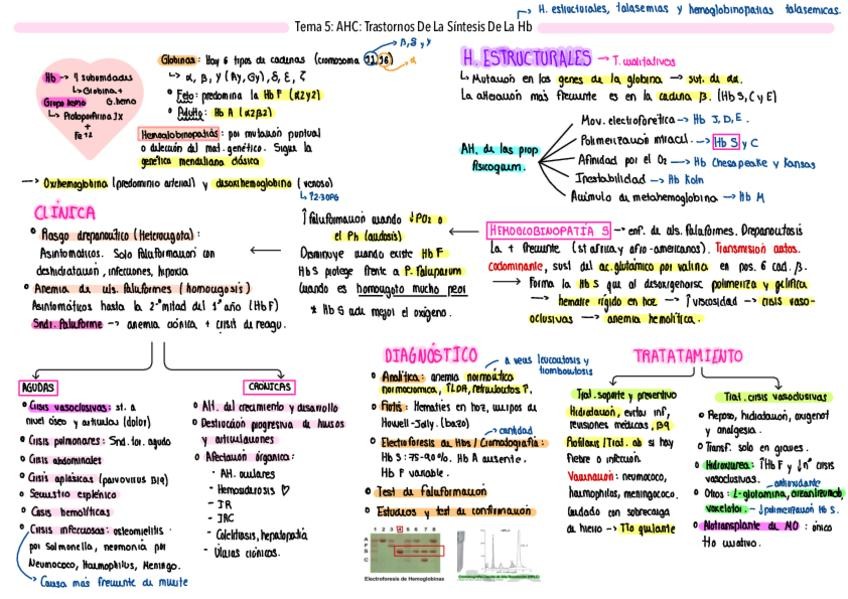 H. estructurales, talasemias y hemoglobinopatias talasemicas.
Tema 5: AHC: Trastornos De La Síntesis De La Hb
Hb → 4 subunidades
↳ Globina +
G. hemo
Grupo hemo
↳ Protoporfirina IX
+
Fe+2
Globinas: Hay 6 tipos de cadenas (cromosoma 11, 16)
→ β, δ y γ
→ α
↳ α, β, γ (Aγ, Gγ), δ, ε, ζ
• Feto: predomina la Hb F (α2γ2)
• Adulto: Hb A (α2β2)
Hemoglobinopatías: por mutación puntual
o delección del mat. genético. Sigue la
genética mendeliana clásica
→ Oxihemoglobina (predominio arterial) y desoxihemoglobina (venoso)
↳ 2-3DPG
H. ESTRUCTURALES → T. cualitativos
↳ Mutación en los genes de la globina → sust. de aa.
La alteración más frecuente es en la cadena β. (HbS, C y E)
Alt. de las prop
fisicoquím.
Mov. electroforética → Hb J, D, E.
Polimerización intracel. → Hb S y C
Afinidad por el O2 → Hb Chesapeake y Kansas
Inestabilidad → Hb Koln
Acúmulo de metahemoglobina → Hb M
HEMOGLOBINOPATÍA S → enf. de cls. falciformes. Drepanocitosis
La + frecuente (st africa y afro-americanos). Transmisión autos.
codominante, sust del ac. glutámico por valina en pos. 6 cad. β.
→ Forma la Hb S que al desoxigenarse polimeriza y gelifica
→ hematíe rígido en hoz → ↑ viscosidad → crisis vaso-
oclusivas → anemia hemolítica.
↑ Falciformación cuando ↓PO2 o
el Ph (acidosis)
Disminuye cuando existe Hb F
Hb S protege frente a P. Falciparum
Cuando es homocigoto mucho peor
* Hb S cede mejor el oxígeno.
CLÍNICA
• Rasgo drepanocítico (Heterocigota):
Asintomáticos. Solo falciformación con
deshidratación, infecciones, hipoxia
• Anemia de cls. falciformes (homocigosis)
Asintomáticos hasta la 2ª mitad del 1º año (HbF)
Sndr. Falciforme → anemia crónica + crisis de reagu.
AGUDAS
• Crisis vasoclusivas: st. a
nivel óseo y articular (dolor)
• Crisis pulmonares: Snd. tor. agudo
• Crisis abdominales
• Crisis aplásicas (parvovirus B19)
• Secuestro esplénico
• Crisis hemolíticas
• Crisis infecciosas: osteomielitis
por Salmonella, neumonía por
Neumococo, Haemophilus, Meningo.
→ Causa más frecuente de muerte
CRONICAS
• Alt. del crecimiento y desarrollo
• Destrucción progresiva de huesos
y articulaciones
• Afectación orgánica:
- Alt. oculares
- Hemosiderosis ♡
- IR
- IRC
- Colelitiasis, hepatopatía
- Úlceras crónicas.
DIAGNÓSTICO
→ a veces leucocitosis y
trombocitosis
• Analítica: anemia normocítica
normocrómica, ↑LDH, reticulocitos ↑.
• Frotis: Hematíes en hoz, cuerpos de
Howell-Jolly. (bazo)
→ cantidad
• Electroforesis de Hbs / Cromatografía:
Hb S: 75-90%. Hb A ausente.
Hb F variable.
• Test de falciformación
• Estudios y test de confirmación
1 2 3 4 5 6 7 8
A
F
S
C
Electroforesis de Hemoglobinas
TRATATAMIENTO
Trat. soporte y preventivo
Hidratación, evitar inf,
revisiones médicas, B9
Profilaxis/Trat. ab si hay
fiebre o infección.
Vacunación: neumococo,
haemophilus, meningococo.
Cuidado con sobrecarga
de hierro → Tto quelante
Trat. crisis vasoclusivas
• Reposo, hidratación, oxigenot
y analgesia.
• Transf. solo en graves.
• Hidroxiurea: ↑HbF y ↓nº crisis
vasoclusivas.
→ antioxidante
• Otros: L-glutamina, crizanlizumab,
voxelotor. → ↓polimerización Hb S.
• Alotransplante de MO: único
tto curativo.